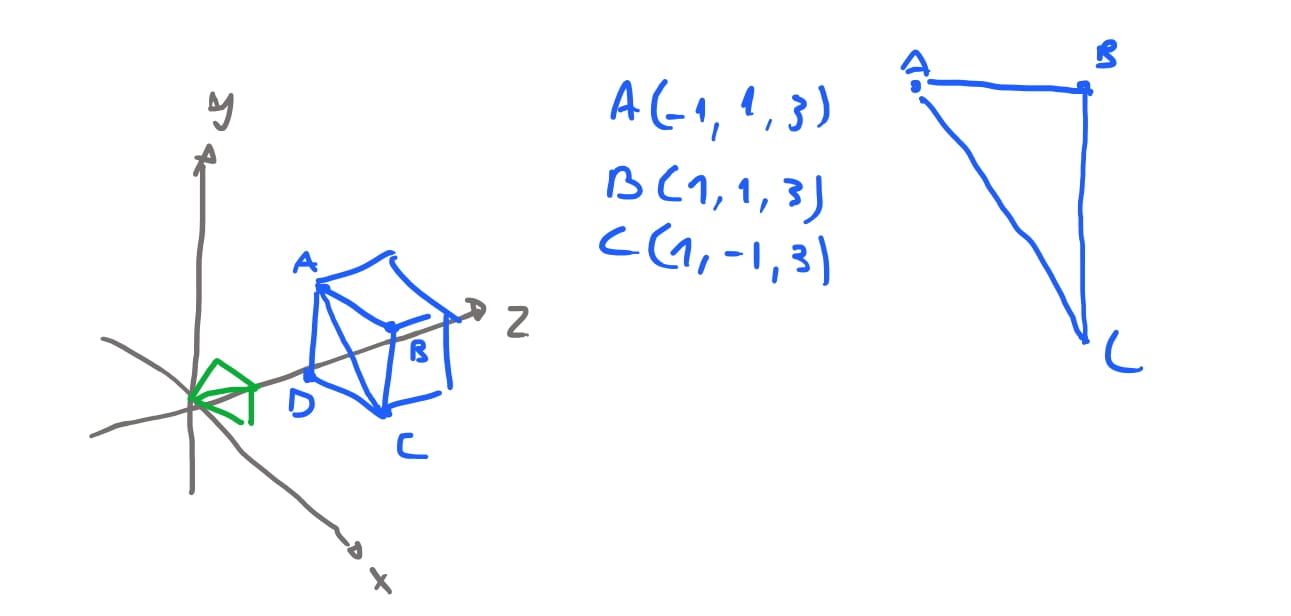 y
A
B
D
C
Z
x
A(-1, 1, 3)
B(1, 1, 3)
C(1, -1, 3)
A
B
C